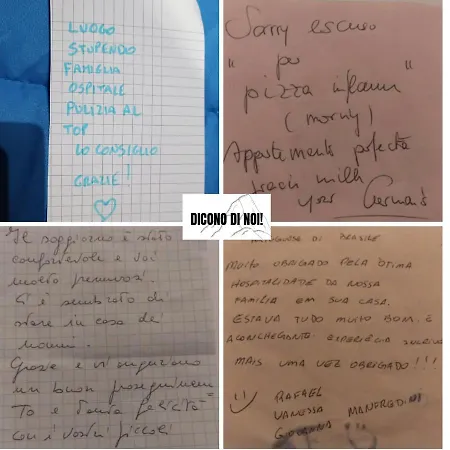 LUOGO
STUPENDO
FAMIGLIA
OSPITALE
PULIZIA AL
TOP
LO CONSIGLIO
GRAZIE!
Sorry escuso
" per
pizza inflamm "
(morny)
Appartemento perfecte
milk
your German's
DICONO DI NOI!
Il soggiorno è stato
confortevole e voi
molto premurosi.
Ci è sembrato di
stare in casa dei
nonni.
Grazie e vi auguriamo
un buon proseguimen
to e tanta felicità
con i vostri piccoli
DI BRASILE
MUITO OBRIGADO PELA ÓTIMA
HOSPITALIDADE DA NOSSA
FAMILIA EM SUA CASA.
ESTAVA TUDO MUITO BOM. E
ACONCHEGANTE. EXPERIÊNCIA
MAIS UMA VEZ OBRIGADO!!!
RAFAEL
VANESSA MANFREDINI
GIOVANNA